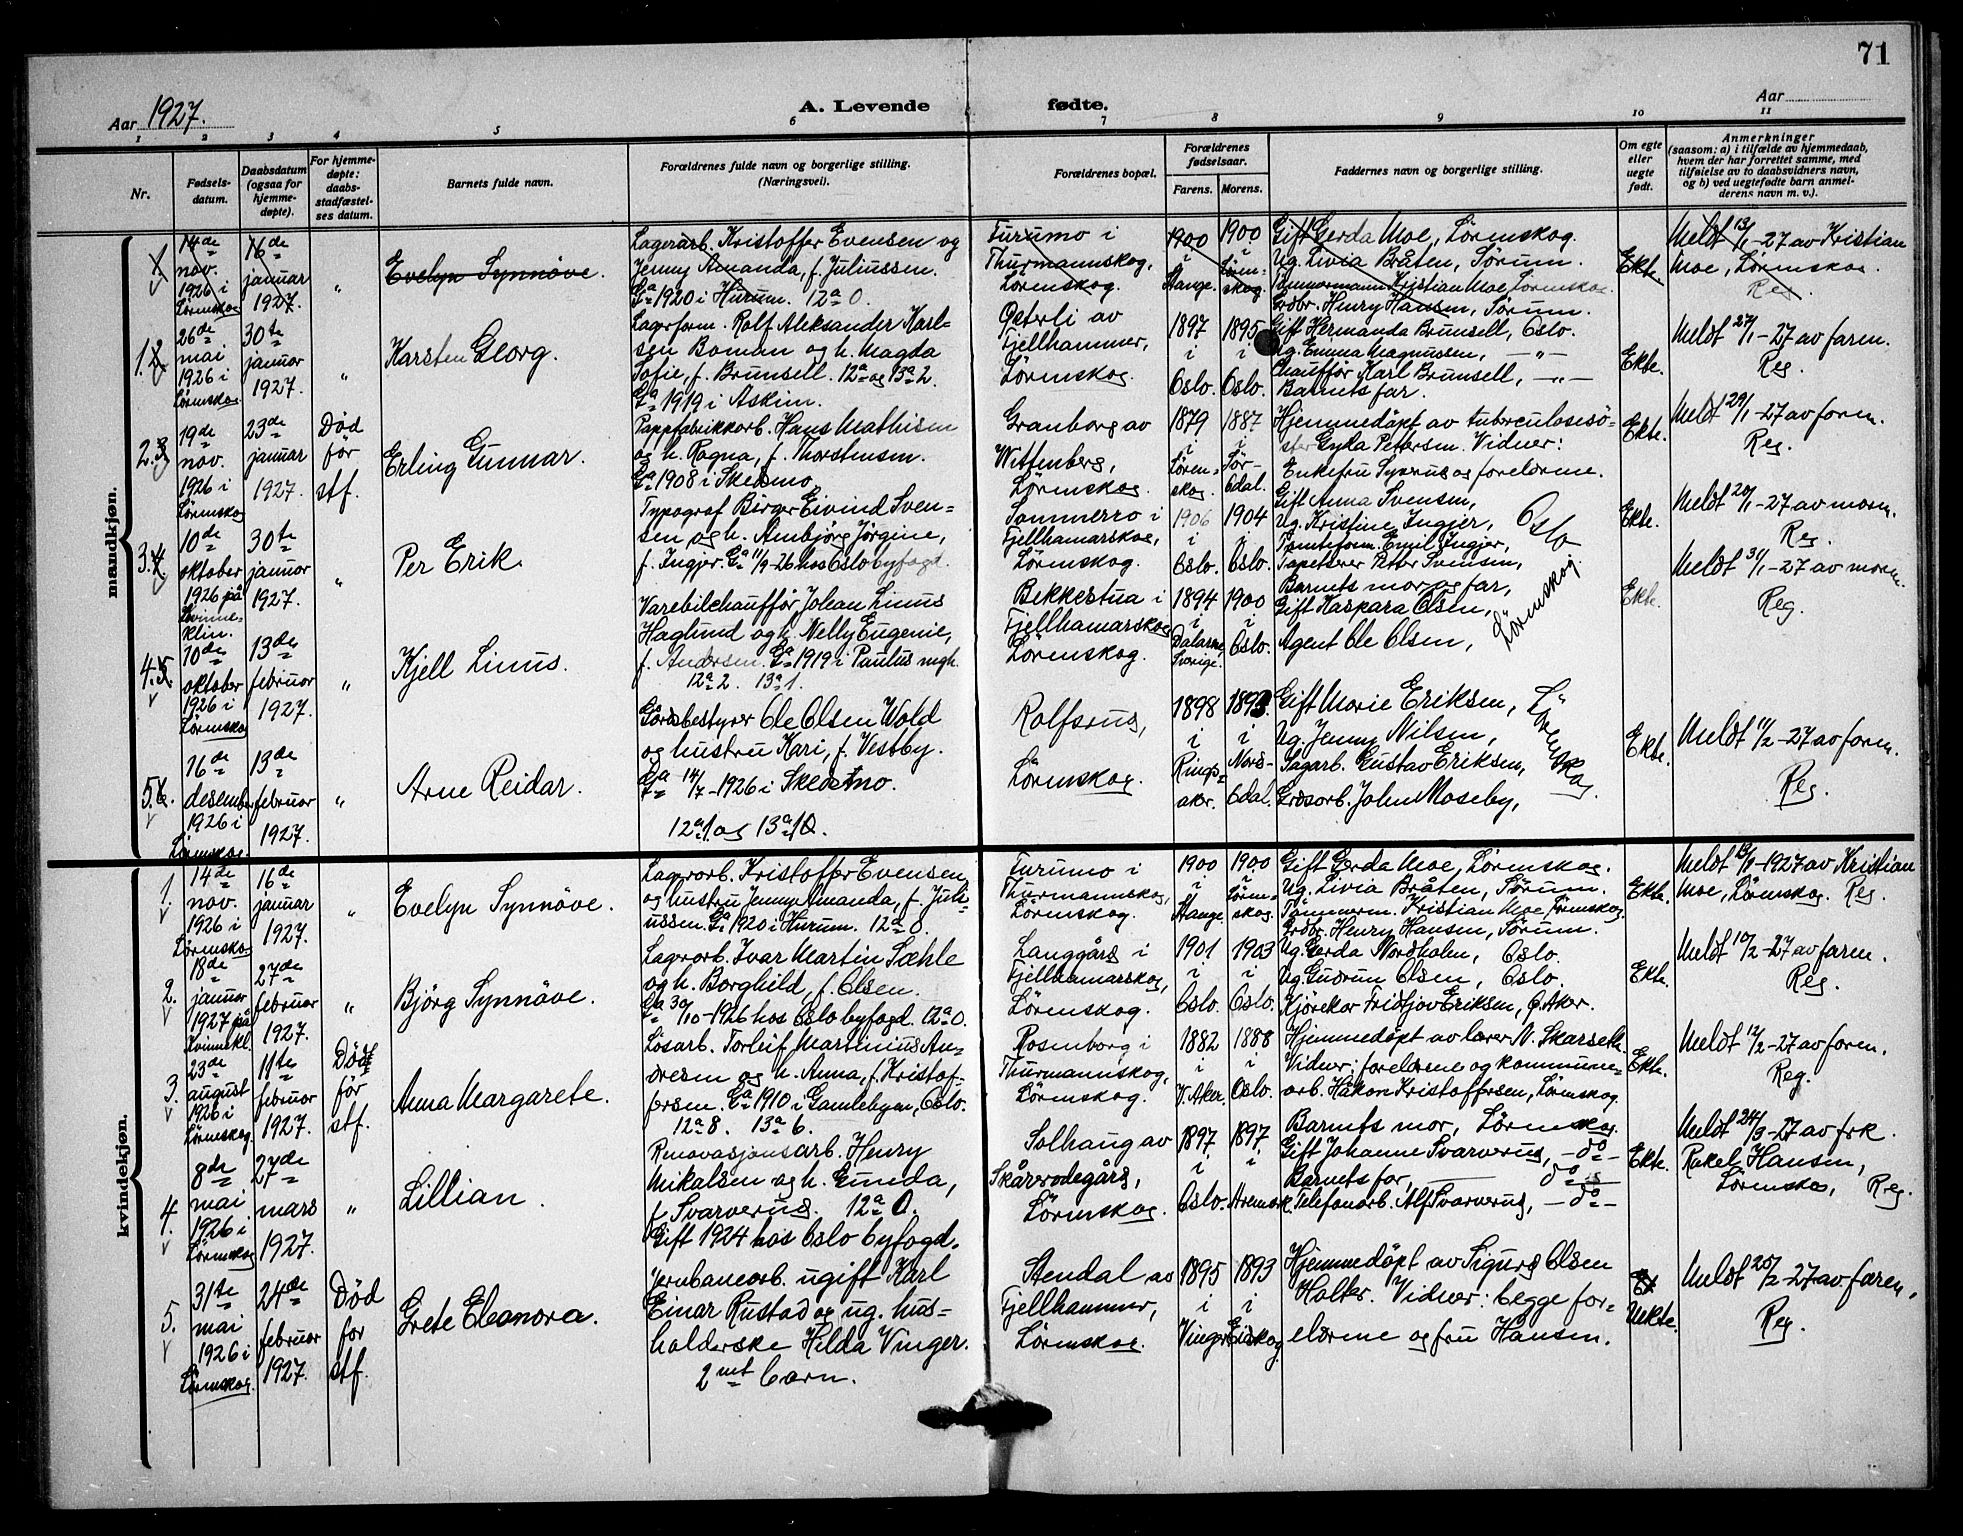 71
Aar 1927.
A. Levende fødte.
Aar
1 2 3 4 5 6 7 8 9 10 11
Nr.
Fødsels-
datum.
Daabsdatum
(ogsaa for
hjemme-
døpte).
For hjemme-
døpte:
daabs-
stadfæstel-
ses datum.
Barnets fulde navn.
Forældrenes fulde navn og borgerlige stilling.
(Næringsvei).
Forældrenes bopæl.
Forældrenes
fødselsaar.
Farens. Morens.
Faddernes navn og borgerlige stilling.
Om egte
eller
uegte
født.
Anmerkninger
(saasom: a) i tilfælde av hjemmedaab,
hvem der har forrettet samme, med
tilføielse av to daabsvidners navn,
og b) ved uegtefødte barn anmel-
derens navn m. v.).
mandkjøn.
1
14de
nov.
1926 i
Lørenskog
16de
januar
1927.
"
Evelyn Synnöve.
Lagerarb. Kristoffer Evensen og
Jenny Amanda, f. Juliussen.
Ga 1920 i Hurum. 12a 0.
Furumo i
Thurmannskog,
Lörenskog.
1900
i
Stange.
1900
i
Lören-
skog.
Gift Gerda Moe, Lörenskog.
Ug. Livia Bråten, Sørum.
Tömmermann Kristian Moe, Lörenskog.
Grdbr. Henry Hansen, Sörum.
Ekte.
Meldt 13/1-27 av Kristian
Moe, Lörenskog.
Reg.
1. 2
26de
mai
1926 i
Lörenskog
30te
januar
1927.
"
Karsten Georg.
Lagerform. Rolf Aleksander Karl-
sen Boman og h. Magda
Sofie, f. Brunsell. 12a og 13a 2.
Ga 1919 i Askim.
Østerli av
Fjellhammer,
Lörenskog.
1897
i
Oslo.
1895
i
Oslo.
Gift Hermanda Brunsell, Oslo.
Ug. Emma Magnussen, -"-
Chauffør Karl Brunsell, -"-
Barnets far.
Ekte.
Meldt 27/1-27 av faren.
Reg.
2. 3
19de
nov.
1926 i
Lörenskog
23de
januar
1927.
Död
før
stf.
Erling Gunnar.
Pappfabrikkarb. Hans Mathisen
og h. Ragna, f. Thorstensen.
Ga 1908 i Skedsmo.
Granborg av
Wittenberg,
Lörenskog.
1879
i
Lören-
skog.
1887
i
Sør-
Odal.
Hjemmedöpt av tuberculosesö-
ster Gyda Pettersen. Vidner:
Enkefru Syverus og forelderne.
Ekte.
Meldt 29/1-27 av faren.
Reg.
3. 4
10de
oktober
1926 på
Kvinne-
klin.
30te
januar
1927.
"
Per Erik
Typograf Birger Eivind Sven-
sen og h. Ambjörg Jörgine,
f. Ingjer. Ga 11/9-26 hos Oslo byfogd.
Sommerro i
Fjellhamarskog,
Lörenskog.
1906
i
Oslo.
1904
i
Oslo.
Gift Anna Svensen,
Ug. Kristine Ingjer,
Tomteform. Emil Ingjer,
Tapetserer Petor Svensen,
Oslo
Ekte.
Meldt 20/1-27 av moren.
Reg.
4. 5.
10de
oktober
1926 i
Lörenskog
13de
februar
1927.
"
Kjell Linus.
Varebilchauffør Johan Linus
Haglund og h. Nelly Eugenie,
f. Andersen. Ga 1919 i Paulus mgh.
12a 2. 13a 1.
Bekkestua i
Fjellhamarskog
Lörenskog.
1894
i
Dalarne,
Sverige.
1900
i
Oslo.
Barnets mor og far,
Gift Kaspara Olsen,
Agent Ole Olsen,
Lörenskog.
Ekte.
Meldt 31/1-27 av moren.
Reg.
5. 6.
16de
desember
1926 i
Lörenskog.
13de
februar
1927.
"
Arne Reidar.
Gårdsbestyrer Ole Olsen Wold
og hustru Kari, f. Vestby.
Ga 14/7-1926 i Skedsmo.
12a 1. og 13a 0.
Rolfsrud,
Lörenskog.
1898
i
Rings-
aker.
1893.
i
Nord-
Odal.
Gift Marie Eriksen,
Ug. Jenny Nilsen,
Sagarb. Gustav Eriksen,
Grdsarb. John Moseby,
Lörenskog
Ekte.
Meldt 11/2-27 av faren.
Reg.
kvindekjøn.
1.
14de
nov.
1926 i
Lörenskog
16de
januar
1927.
"
Evelyn Synnöve.
Lagerarb. Kristoffer Evensen
og hustru Jenny Amanda, f. Juli-
ussen. Ga 1920 i Hurum. 12a 0.
Furumo i
Thurmannskog,
Lörenskog.
1900
i
Stange.
1900
i
Lören-
skog.
Gift Gerda Moe, Lörenskog.
Ug. Livia Bråten, Sörum.
Tömmerm. Kristian Moe Lörenskog
Grdbr. Henry Hansen, Sörum.
Ekte.
Meldt 13/1-1927 av Kristian
Moe, Lörenskog. Reg.
2.
18de
januar
1927 på
Kvinnekl.
27de
februar
1927.
"
Björg Synnöve.
Lagerarb. Ivar Martin Sæhle
og h. Borghild, f. Olsen.
Ga 30/10-1926 hos Oslo byfogd. 12a 0.
Langgård i
Fjellhamarskog,
Lörenskog.
1901
i
Oslo.
1903
i
Oslo.
Ug. Gerda Nordholm, Oslo.
Ug. Gudrun Olsen, Oslo.
Kjörekar Fridtjov Eriksen, Ø. Aker.
Ekte.
Meldt 10/2-27 av faren.
Reg.
3.
23de
august
1926 i
Lörenskog.
11te
februar
1927.
Död
før
stf.
Anna Margarete.
Løsarb. Torleif Martinius An-
dresen og h. Anna, f. Kristof-
fersen. Ga 1910 i Gamlebyen, Oslo.
12a 8. 13a 6.
Rosenborg i
Thurmannskog,
Lörenskog.
1882
i
V. Aker.
1888
i
Oslo.
Hjemmedöpt av lærer N. Skarseth.
Vidner: forelderne og kommune-
arb. Håkon Kristoffersen, Lörenskog.
Ekte.
Meldt 12/2-27 av faren.
Reg.
4.
8de
mai
1926 i
Lörenskog
27de
mars
1927.
"
Lillian.
Renovasjonsarb. Henry
Mikalsen og h. Gunda,
f. Svarverud. 12a 0.
Gift 1924 hos Oslo byfogd.
Solhaug av
Skårerödegård,
Lörenskog.
1897
i
Oslo.
1897
i
Aremark.
Barnets mor, Lörenskog.
Gift Johanne Svarverud, -do-
Barnets far, do
Telefonarb. Alf Svarverud, -do-
Ekte.
Meldt 24/3-27 av frk.
Rakel Hansen,
Lörenskog, Reg.
5.
31te
mai
1926 i
Lörenskog.
24de
februar
1927.
Död
for
stf.
Grete Eleanora.
Jernbanearb. ugift Karl
Einar Rustad og ug. hus-
holderske Hilda Vinger.
2net barn.
Stendal av
Fjellhammer,
Lörenskog.
1895
i
Vinger
1893
i
Eidskog
Hjemmedöpt av Sigurd Olsen
Holter. Vidner: begge for-
elderne og fru Hansen.
Uekte.
Meldt 25/2-27 av faren.
Reg.